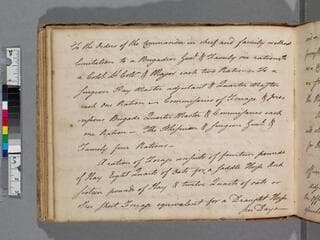 To the Orders of the Commander in cheif and family without
limitation to a Brigadier Genl. & Family one rations to
a Colo. Lt. Colo. & Major each two Rations To a
Surgeon Pay Master adjutant & Quarter Master
each one Ration Commissaries of Forage &
Brigade Quarter Master & Commissaries each
one Ration — The Phisician & Surgeon Genl. &
Family four Rations —
A ration of Forage consists of fourteen pounds
of Hay Eight Quarts of oats for a Saddle Horse And
sixteen pounds of Hay & twelve Quarts of oats or
other Short Forage equivalent for a Draught Horse
per Day